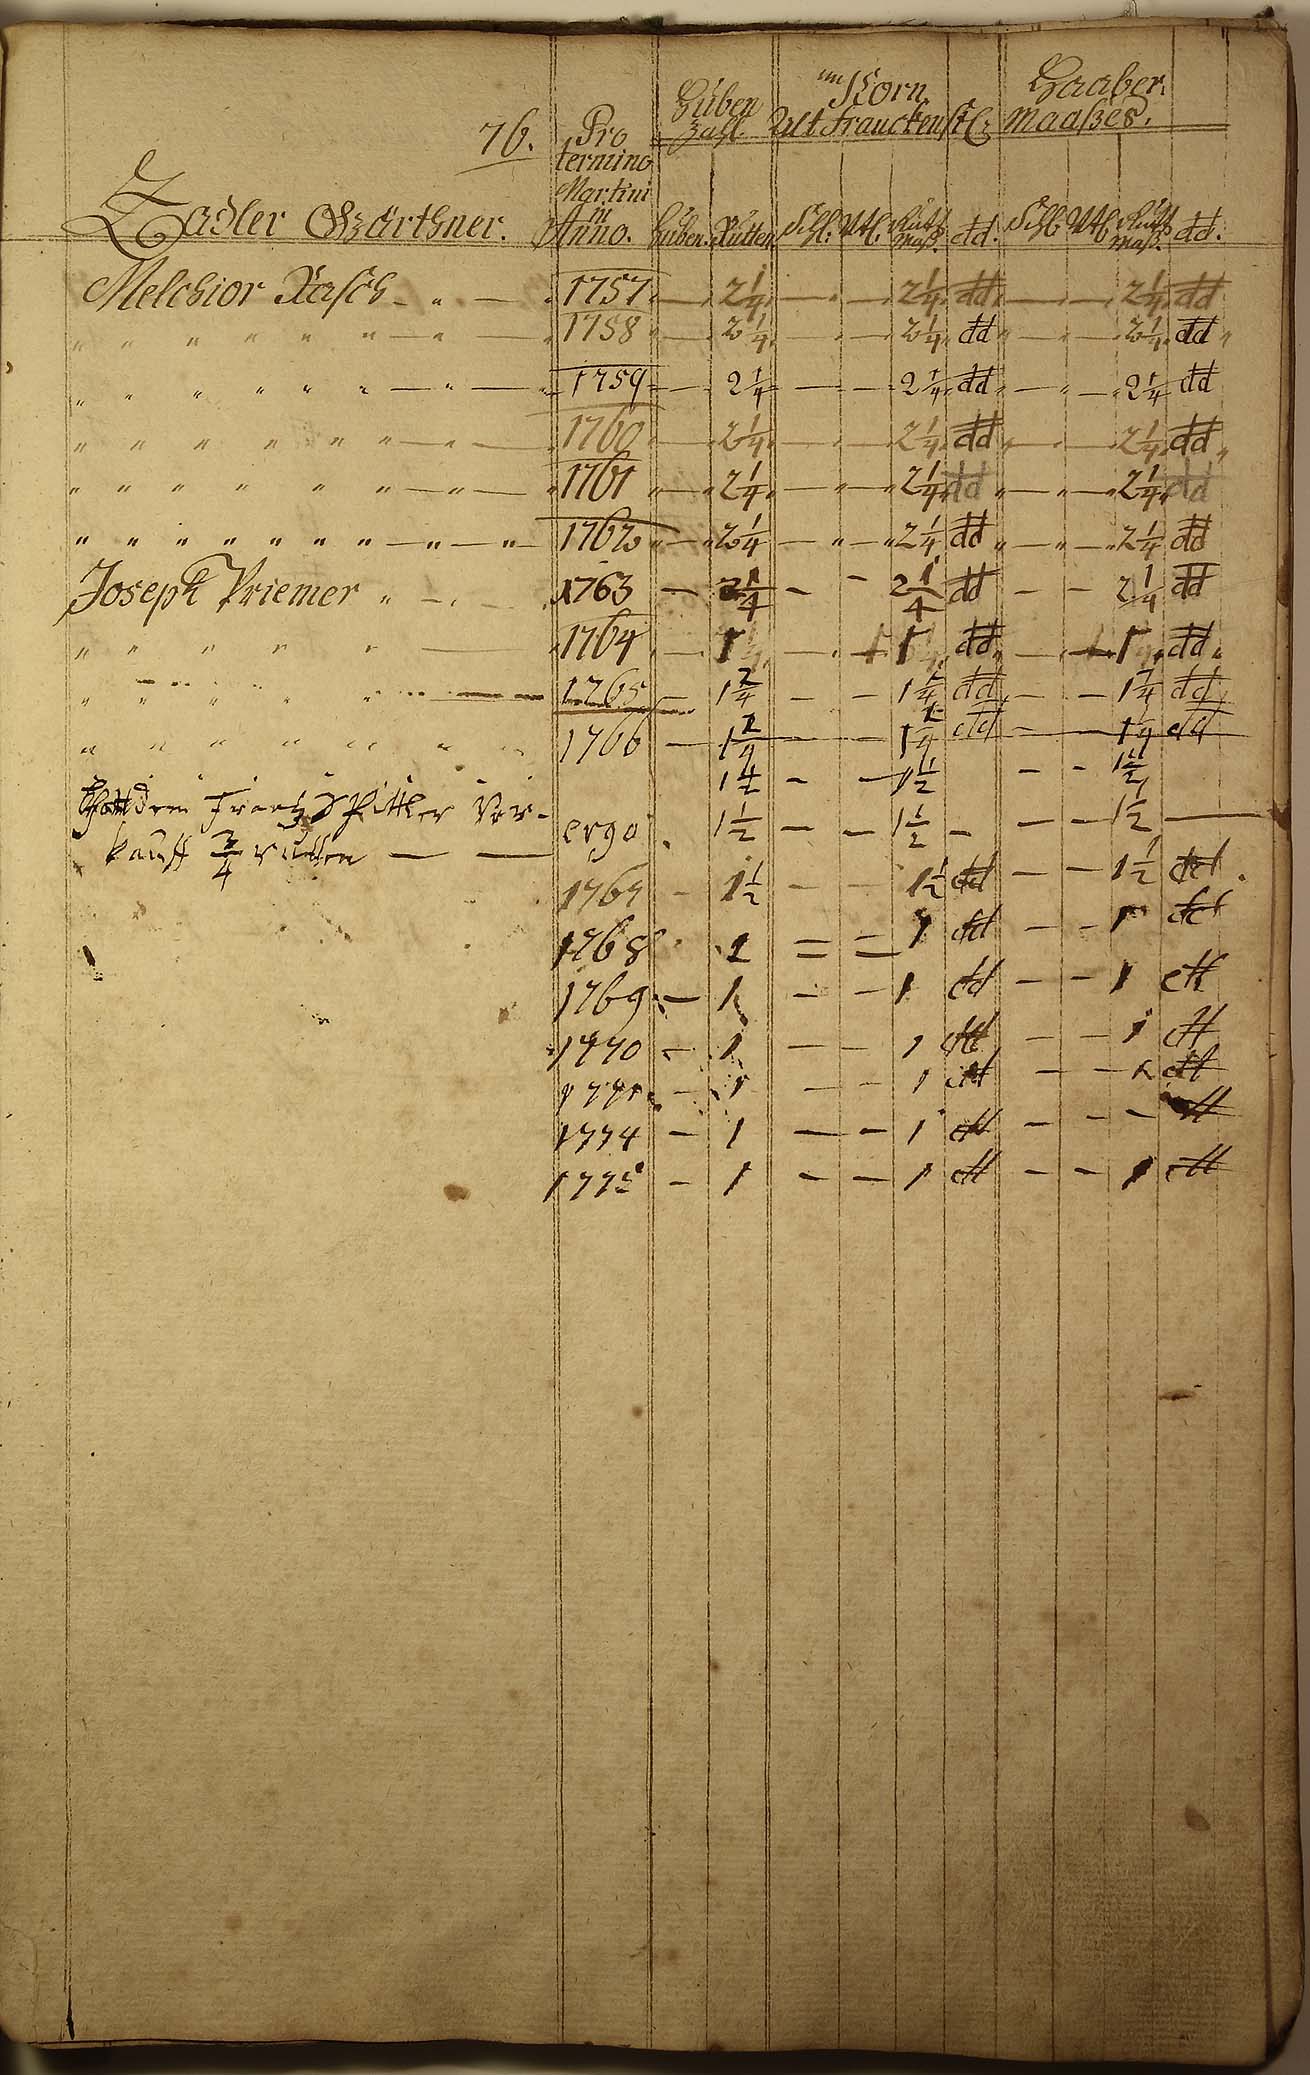 76.
Pro termino Martini in Anno.
Huben Zahl
im Korn Haaber.
Alt Franckenst: Maaßes.
Zadler Gärthner. Huben. Rutten Schl: Vtl. Maß. dd. Schl: Vtl. Maß. dd.
Melchior Rasch - " - 1757 - 2 1/4 - - 2 1/4 dd - - 2 1/4 dd
" " " " " " - " 1758 - 2 1/4 - - 2 1/4 dd - - 2 1/4 dd
" " " " " " - " - 1759 - 2 1/4 - - 2 1/4 dd - - 2 1/4 dd
" " " " " " - " - 1760 - 2 1/4 - - 2 1/4 dd - - 2 1/4 dd
" " " " " " - " - 1761 - 2 1/4 - - 2 1/4 dd - - 2 1/4 dd
" " " " " " " " - " - " 1762 - 2 1/4 - - 2 1/4 dd - - 2 1/4 dd
Joseph Priemer " - 1763 - 2 1/4 - - 2 1/4 dd - - 2 1/4 dd
" " " " " - 1764 - 1 - - 1 dd - - 1 dd
" " " " " - 1765 - 1 - - 1 dd - - 1 dd
" " " " " " " 1766 - 1 - - 1 dd - - 1 dd
1 1/2 - - 1 1/2 - - 1 1/2
Hatt dem Frantz Ver-
kaufft 3/4 rutten - - ergo 1 1/2 - - 1 1/2 - - - 1 1/2 -
1767 - 1 1/2 - - 1 1/2 dd - - 1 1/2 dd
1768 1 = = 1 dd - - 1 dd
1769 - 1 - - 1 dd - - 1 dd
1770 - 1 - - 1 dd - - 1 dd
1771 - 1 - - 1 dd - - 1 dd
1774 - 1 - - 1 dd - - - dd
1775 - 1 - - 1 dd - - 1 dd